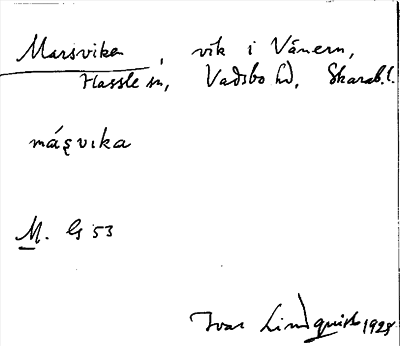 Marsviken, vik i Vänern,
Hassle sn, Vadsbo hd, Skarab. l.
má̱ʂvika
M. G 53
Ivar Lindquist 1928